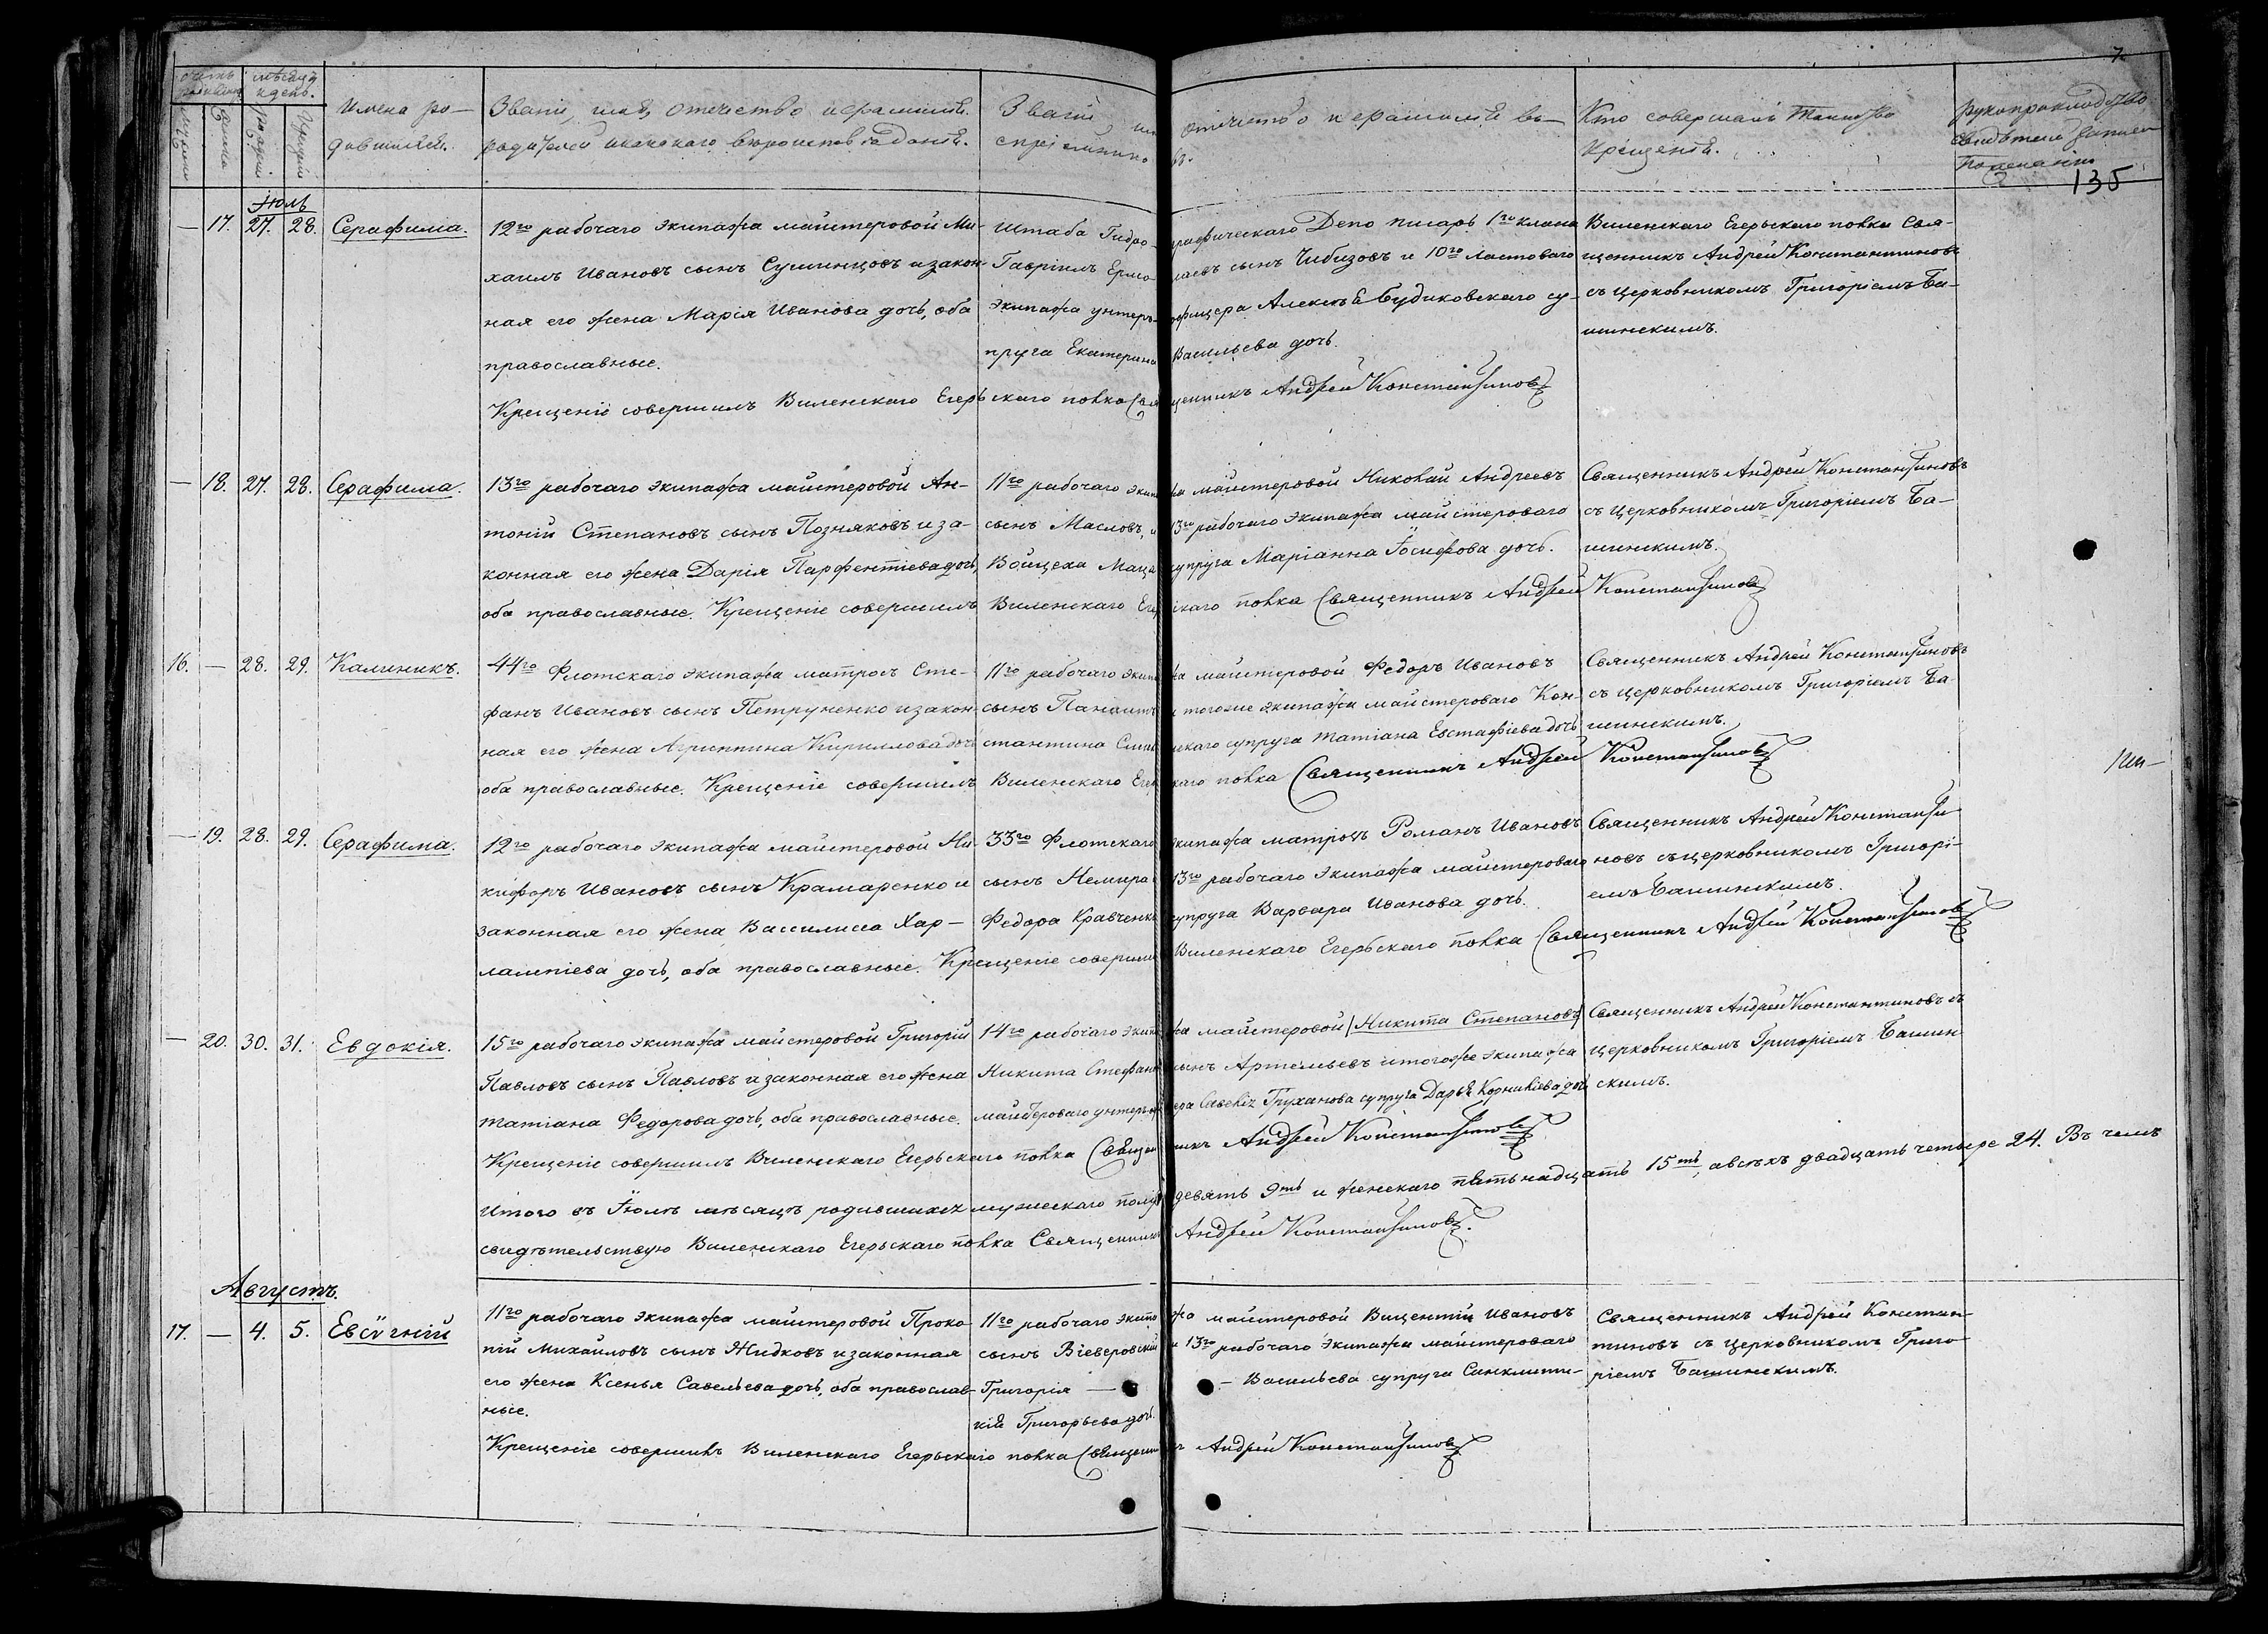 7.
135
мѣсяцъ и день.
Имена родившихся.
Званіе, имя, отечество и фамилія родителей и какого вѣроисповѣданія.
Званіе, имя, отечество и фамилія воспріемниковъ.
Кто совершалъ таинство крещенія.
Рукоприкладство свидѣтелей записи по желанію
Іюль
— 17. 27. 28. Серафима.
12го рабочаго экипажа майстеровой Ми-
хаилъ Ивановъ сынъ Сушинцовъ и закон-
ная его жена Марія Иванова дочь, оба
православные.
Штаба Гидрографическаго Депо писарь 1го класа
Гавріилъ Ермолаевъ сынъ Чибизовъ и 10го ластоваго
экипажа унтеръ-офицера Алексѣя Будиковскаго су-
пруга Екатерина Васильева дочь.
Виленскаго Егерьскаго полка Свя-
щенникъ Андрей Константиновъ
съ церковникомъ Григоріемъ Ба-
шинскимъ.
Крещеніе совершилъ Виленскаго Егерьскаго полка Священникъ Андрей Константиновъ
— 18. 27. 28. Серафима.
13го рабочаго экипажа майстеровой Ан-
тоній Степановъ сынъ Позняковъ и за-
конная его жена Дарія Парфентіева дочь,
оба православные. Крещеніе совершилъ Виленскаго Егерьскаго полка Священникъ Андрей Константиновъ
11го рабочаго экипажа майстеровой Николай Андреевъ
сынъ Масловъ, и 13го рабочаго экипажа майстероваго
Войцеха супруга Маріанна Іосифова дочь.
Священникъ Андрей Константиновъ
съ церковникомъ Григоріемъ Ба-
шинскимъ.
16. — 28. 29. Калиникъ.
44го Флотскаго экипажа матросъ Сте-
фанъ Ивановъ сынъ Петруненко и закон-
ная его жена Агриппина Кириллова дочь
оба православные. Крещеніе совершилъ Виленскаго Егерьскаго полка Священникъ Андрей Константиновъ
11го рабочаго экипажа майстеровой Федоръ Ивановъ
сынъ и тогоже экипажа майстероваго Кон-
стантина супруга Татіана Евстафіева дочь
Священникъ Андрей Константиновъ
съ церковникомъ Григоріемъ Ба-
шинскимъ.
— 19. 28. 29. Серафима.
12го рабочаго экипажа майстеровой Ни-
кифоръ Ивановъ сынъ Крамаренко и
законная его жена Василисса Хар-
лампіева дочь, оба православные. Крещеніе совершилъ Виленскаго Егерьскаго полка Священникъ Андрей Константиновъ
33го Флотскаго экипажа матросъ Романъ Ивановъ
сынъ Немира 13го рабочаго экипажа майстероваго
Федора Кравченка супруга Варвара Иванова дочь.
Священникъ Андрей Константи-
новъ съ церковникомъ Григорі-
емъ Башинскимъ.
— 20. 30. 31. Евдокія.
15го рабочаго экипажа майстеровой Григорій
Павловъ сынъ Павловъ и законная его жена
Татіана Федорова дочь, оба православные.
14го рабочаго экипажа майстеровой /Никита Степановъ/
Никита Стефановъ сынъ Артемьевъ и тогоже экипажа
майстероваго унтеръ-офицера Савелія Груханова супруга Дарья Корнилiева дочь
Священникъ Андрей Константиновъ съ
церковникомъ Григоріемъ Башин
скимъ.
Крещеніе совершилъ Виленскаго Егерьскаго полка Священникъ Андрей Константиновъ
Итого въ Іюлѣ мѣсяцѣ родившихся мужескаго пола девять 9ть и женскаго пятьнадцать 15ть, а всѣхъ двадцать четыре 24. Въ чемъ
свидѣтельствую Виленскаго Егерьскаго полка Священникъ Андрей Константиновъ.
Августъ.
17. — 4. 5. Евсѵгній
11го рабочаго экипажа майстеровой Проко-
пій Михайловъ сынъ Жидковъ и законная
его жена Ксенья Савельева дочь, оба православ-
ные.
11го рабочаго экипажа майстеровой Вицентій Ивановъ
сынъ Віеверовскій и 13го рабочаго экипажа майстероваго
Григорія — — Васильева супруга Синклити-
кія Григорьева дочь.
Священникъ Андрей Констан-
тиновъ съ церковникомъ Григо-
ріемъ Башинскимъ.
Крещеніе совершилъ Виленскаго Егерьскаго полка Священникъ Андрей Константиновъ